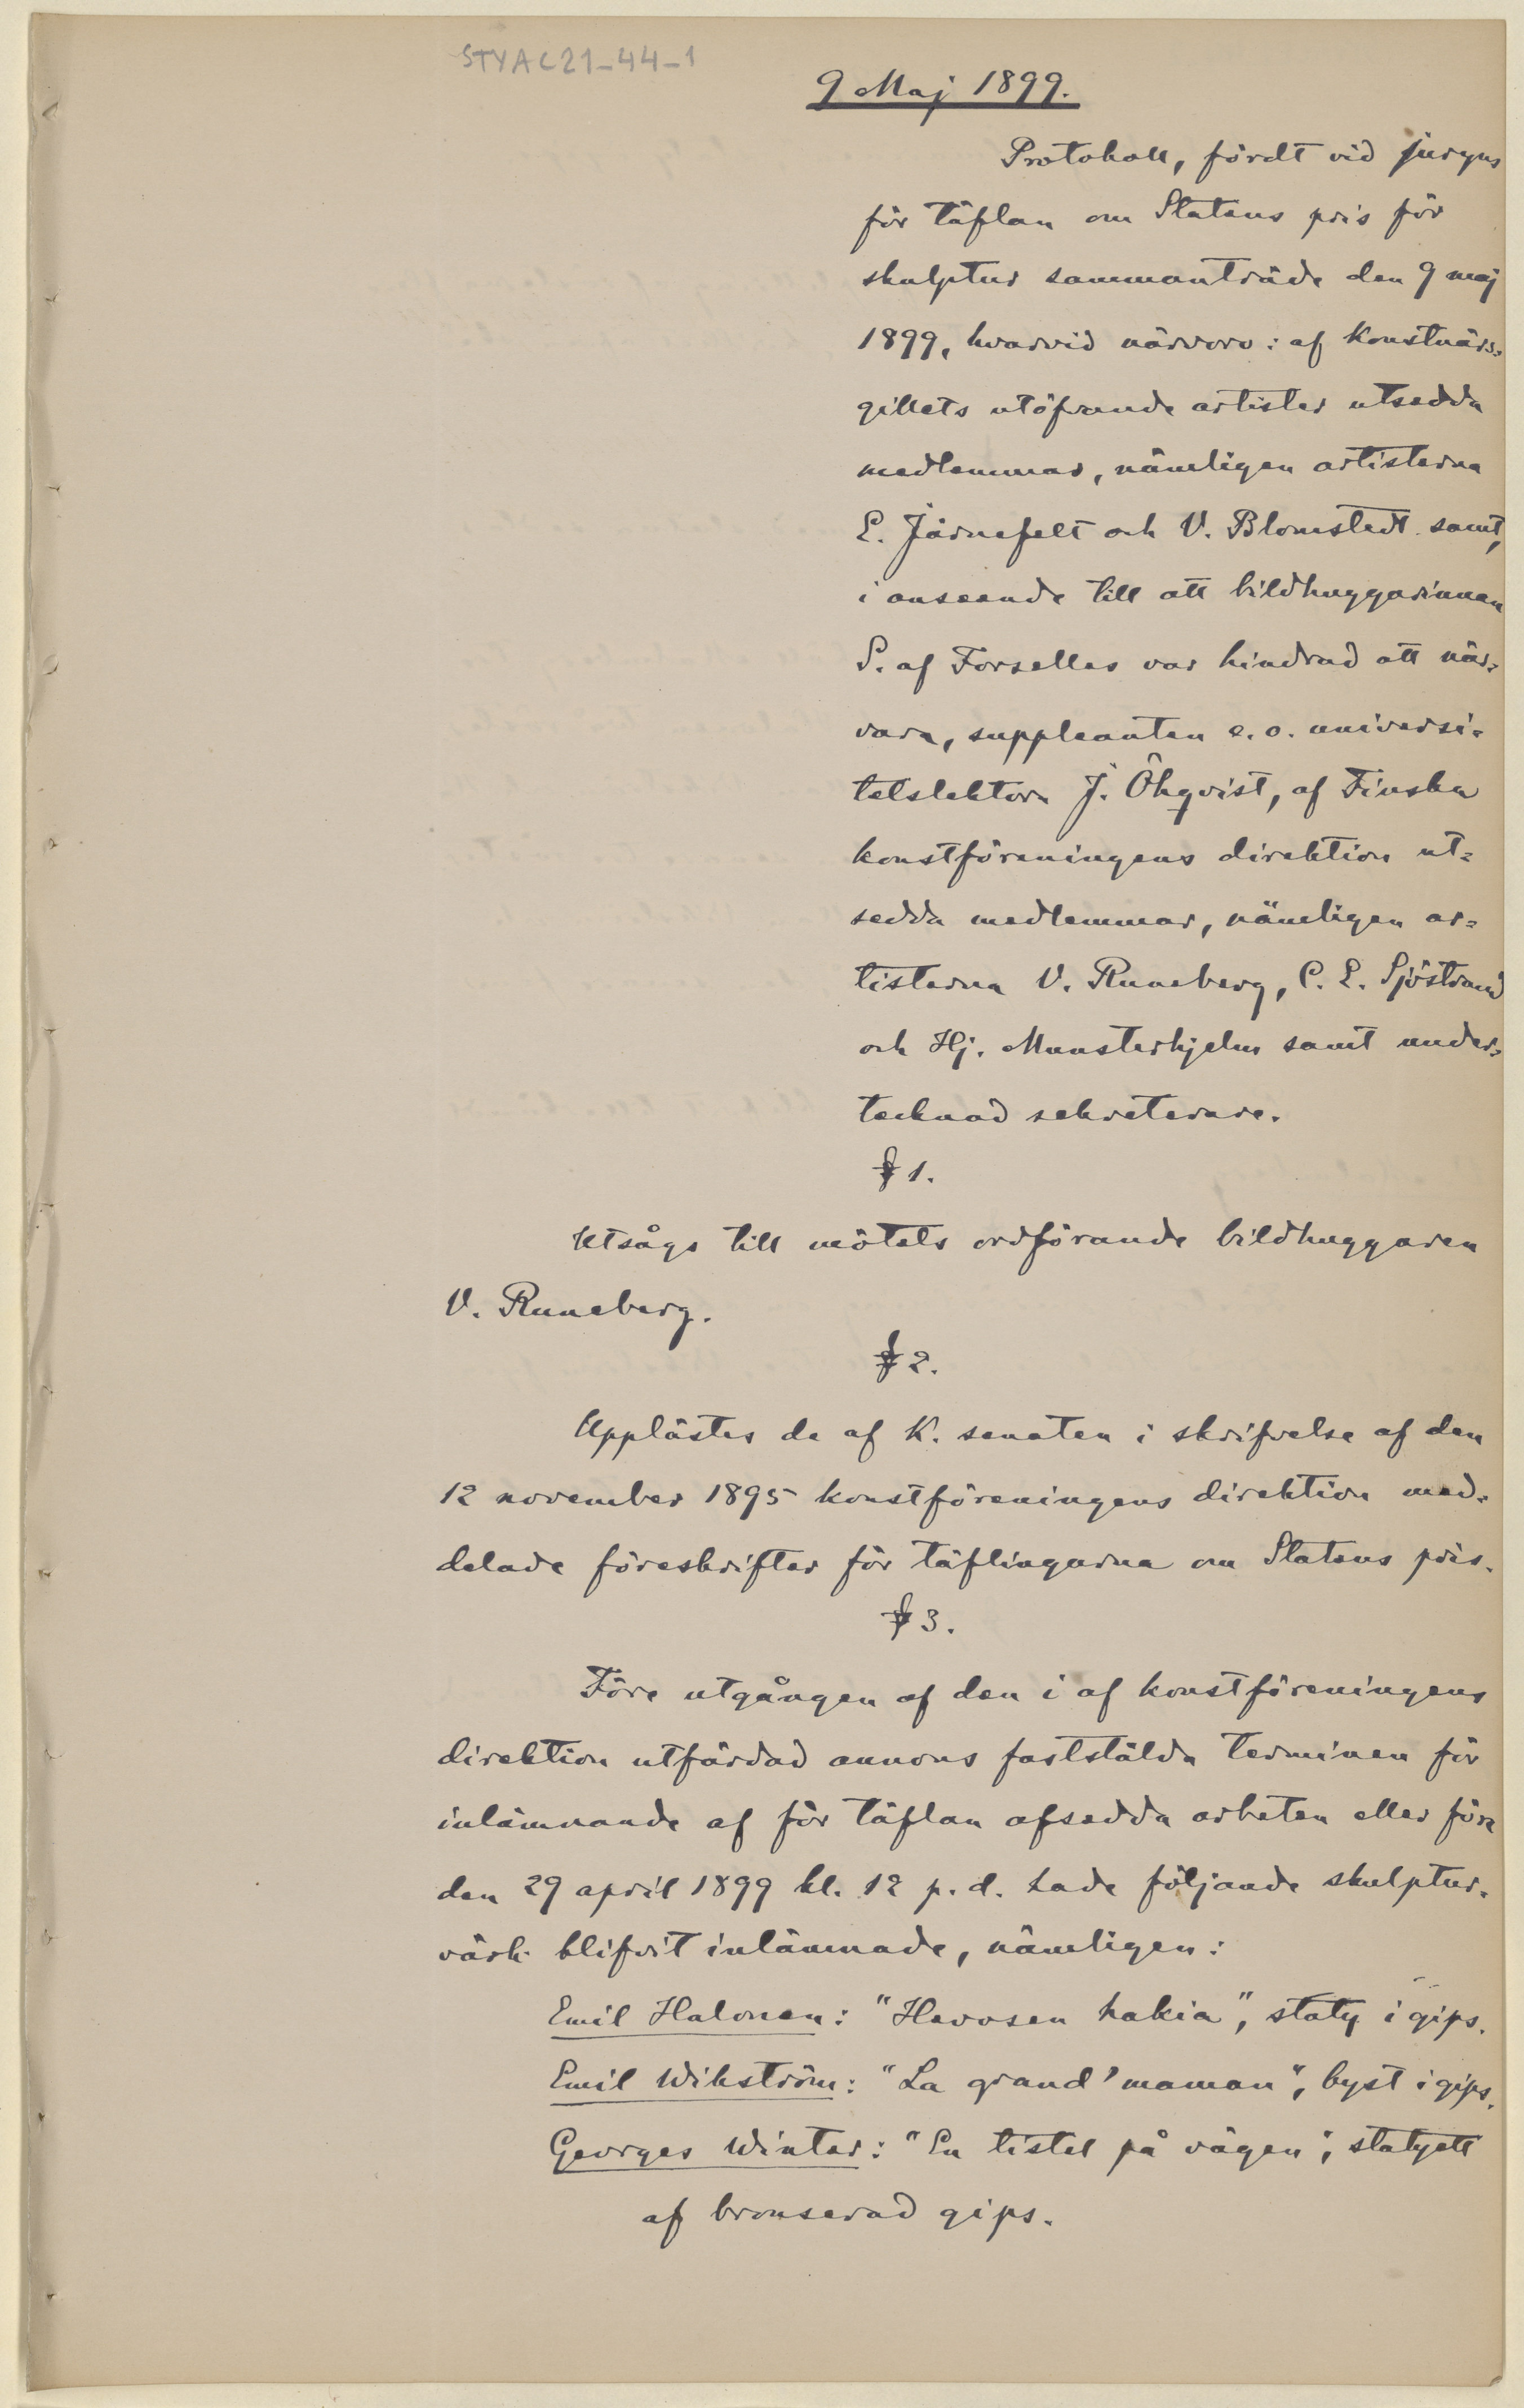 STYAC21-44-1
9 Maj 1899.
Protokoll, fördt vid juryns
för täflan om Statens pris för
skulptur sammanträde den 9 maj
1899, hvarvid närvoro: af Konstnärs-
gillets utöfvande artister utsedda
medlemmar, nämligen artisterna
E. Järnefelt och V. Blomstedt samt,
i anseende till att bildhuggarinnan
S. af Forselles var hindrad att när-
vara, suppleanten e.o. universi-
tetslektorn J. Öhqvist, af Finska
konstföreningens direktion ut-
sedda medlemmar, nämligen ar-
tisterna V. Runeberg, C. E. Sjöstrand
och Hj. Munsterhjelm samt under-
tecknad sekreterare.
§ 1.
Utsågs till mötets ordförande bildhuggaren
V. Runeberg.
§ 2.
Upplästes de af K. senaten i skrifvelse af den
12 november 1895 konstföreningens direktion med-
delade föreskrifter för täflingarna om Statens pris.
§ 3.
Före utgången af den i af konstföreningens
direktion utfärdad annons faststälda terminen för
inlämnande af för täflan afsedda arbeten eller före
den 29 april 1899 kl. 12 p. d. hade följande skulptur-
värk blifvit inlämnade, nämligen:
Emil Halonen: "Hevosen hakia", staty i gips.
Emil Wikström: "La grand'maman", byst i gips.
Georges Winter: "En tistel på vägen", statyett
af bronserad gips.